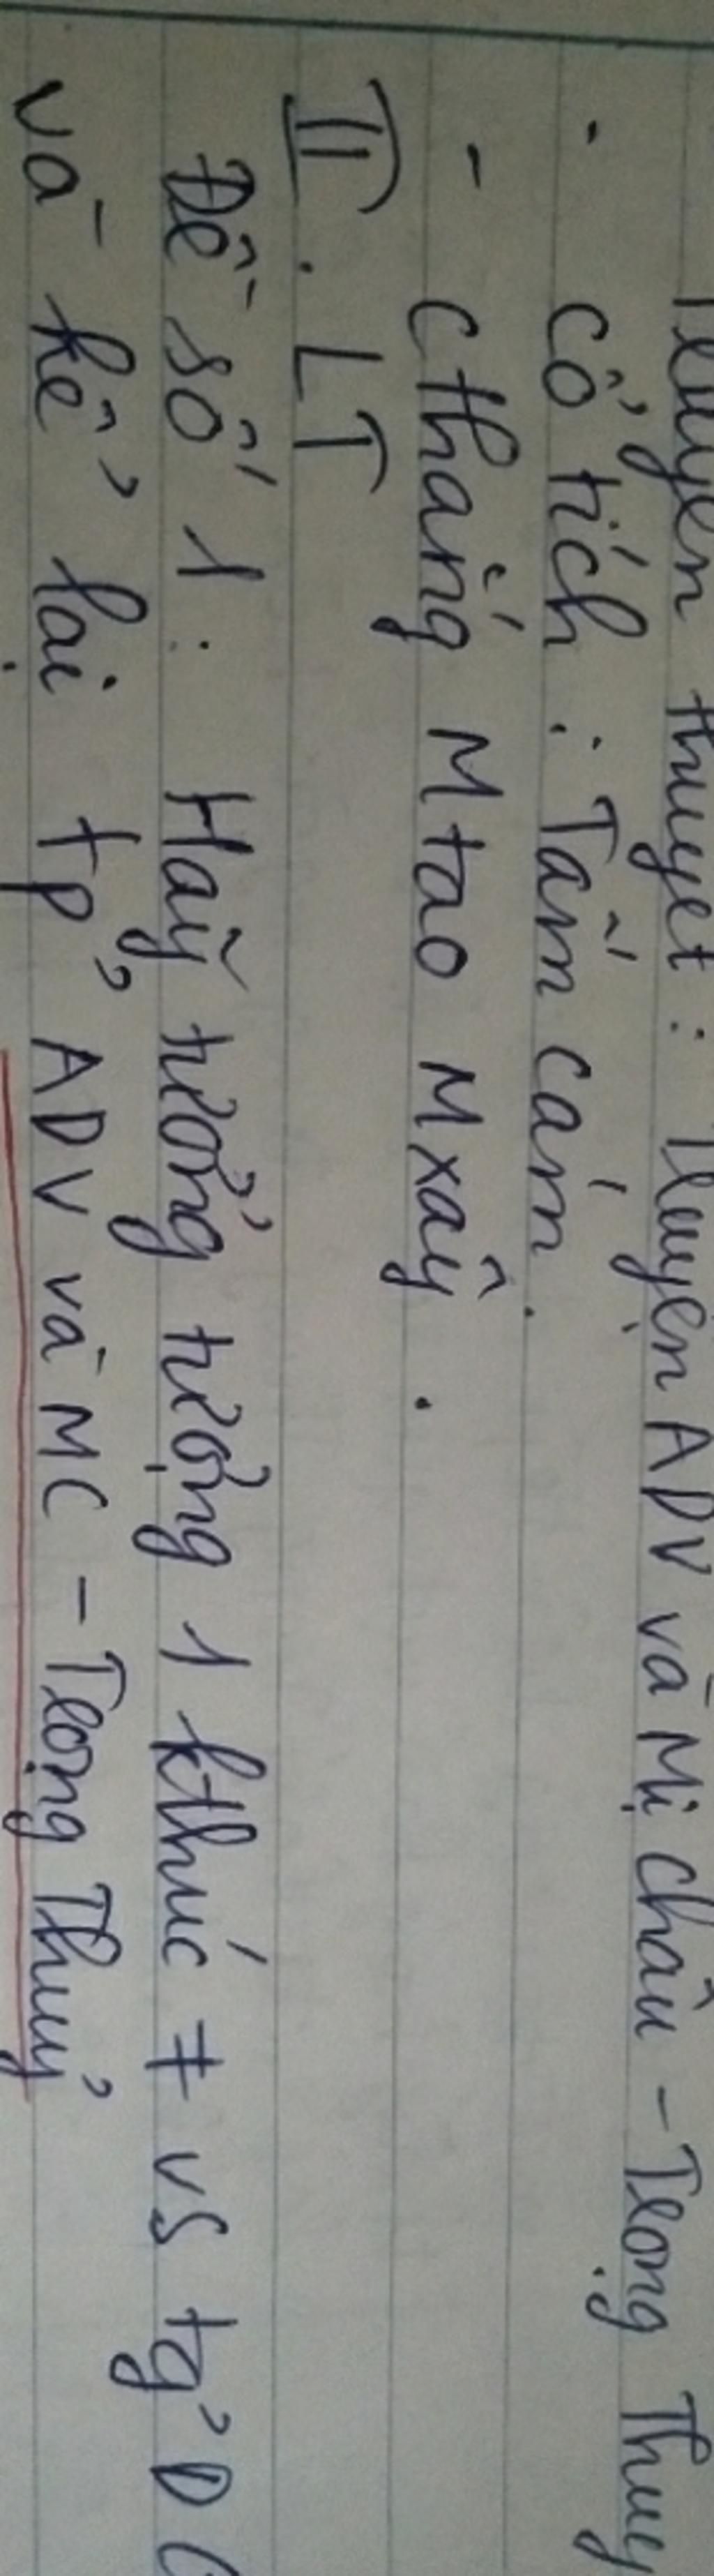 Truyền thuyết : Truyện ADV và Mị Châu - Trọng Thuỷ
- Cổ tích : Tấm Cám.
- C thắng Mtao Mxây .
II . LT
Đề số 1 : Hãy tưởng tượng 1 kthúc ≠ vs tg'
và kể lại tp' ADV và MC - Trọng Thuỷ